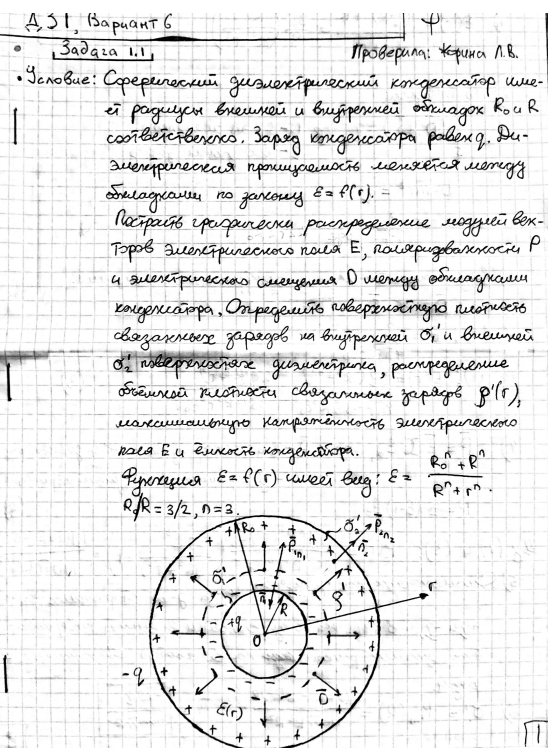 ДЗ1, Вариант 6
Задача 1.1
Проверила: Корина Л.В.
• Условие: Сферический диэлектрический конденсатор име-
ет радиусы внешней и внутренней обкладок R₀ и R
соответственно. Заряд конденсатора равен q. Ди-
электрическая проницаемость меняется между
обкладками по закону ε = f(r).
Построить графически распределение модулей век-
торов электрического поля E, поляризованности P
и электрического смещения D между обкладками
конденсатора. Определить поверхностную плотность
связанных зарядов на внутренней σ₁' и внешней
σ₂' поверхностях диэлектрика, распределение
объёмной плотности связанных зарядов ρ'(r),
максимальную напряжённость электрического
поля E и ёмкость конденсатора.
Функция ε = f(r) имеет вид: ε = (R₀ⁿ + Rⁿ)/(Rⁿ + rⁿ).
R₀/R = 3/2, n = 3.
R₀ σ₂' P̄₂n₂
P̄₁n₁ n̄₂
σ₁' n̄ R ρ' r
+q
O
-q
ε(r) D̄
1